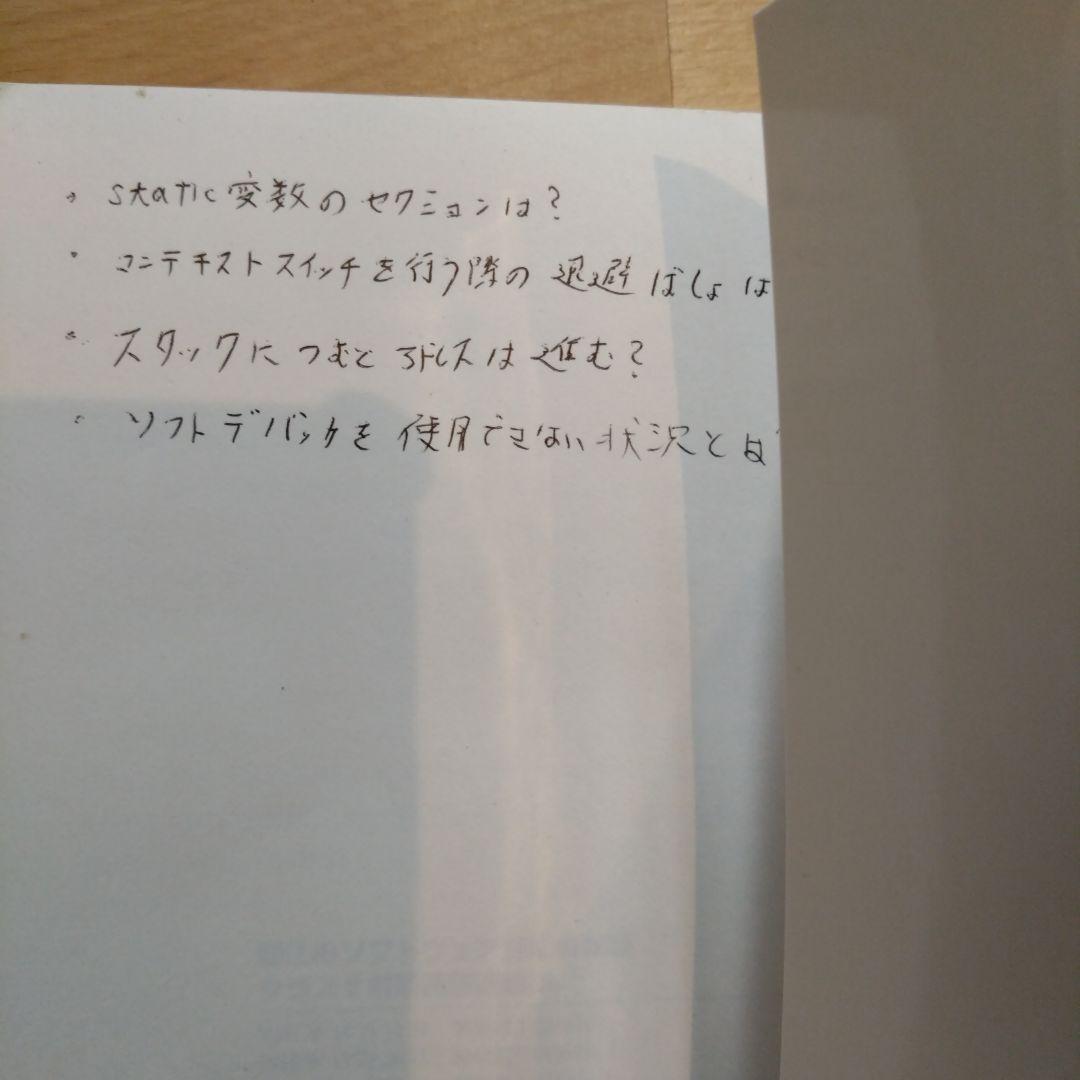 ・static変数のセクションは?
・コンテキストスイッチを行う際の退避ばしょは
・スタックにつむとアドレスは進む?
・ソフトデバックを使用できない状況とは